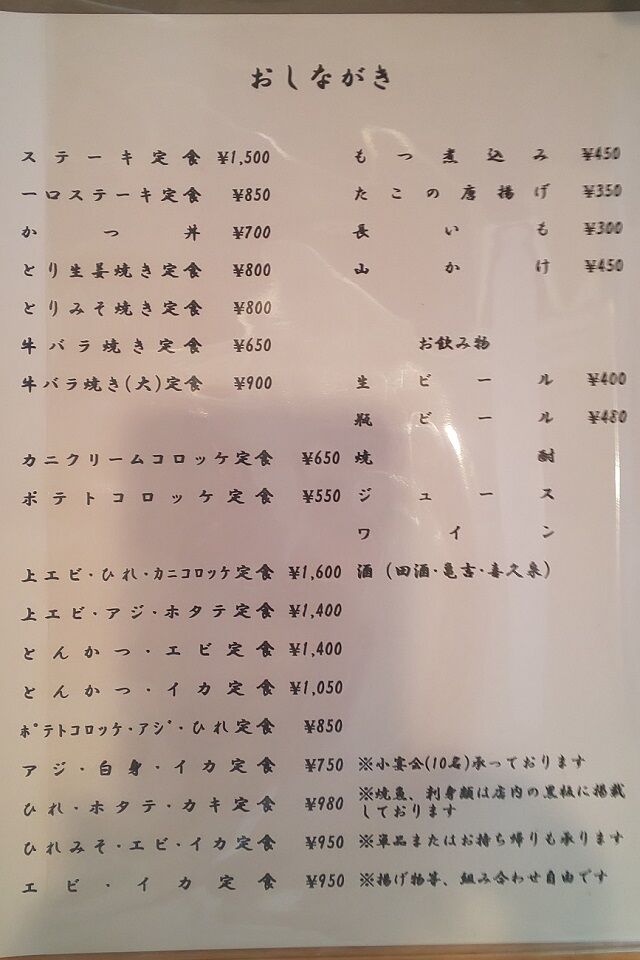 おしながき
ステーキ定食 ¥1,500
一口ステーキ定食 ¥850
かつ丼 ¥700
とり生姜焼き定食 ¥800
とりみそ焼き定食 ¥800
牛バラ焼き定食 ¥650
牛バラ焼き(大)定食 ¥900
カニクリームコロッケ定食 ¥650
ポテトコロッケ定食 ¥550
上エビ・ひれ・カニコロッケ定食 ¥1,600
上エビ・アジ・ホタテ定食 ¥1,400
とんかつ・エビ定食 ¥1,400
とんかつ・イカ定食 ¥1,050
ポテトコロッケ・アジ・ひれ定食 ¥850
アジ・白身・イカ定食 ¥750
ひれ・ホタテ・カキ定食 ¥980
ひれみそ・エビ・イカ定食 ¥950
エビ・イカ定食 ¥950
もつ煮込み ¥450
たこの唐揚げ ¥350
長いも ¥300
山かけ ¥450
お飲み物
生ビール ¥400
瓶ビール ¥480
焼酎
ジュース
ワイン
酒 (田酒・亀吉・喜久泉)
※小宴会(10名)承っております
※焼魚、刺身類は店内の黒板に掲載
しております
※単品またはお持ち帰りも承ります
※揚げ物等、組み合わせ自由です